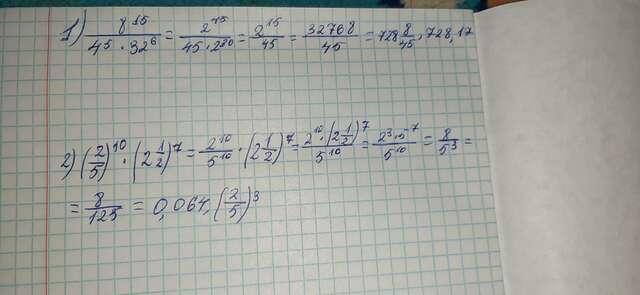 1) 8^15/(4^5 · 32^6) = 2^45/(45 · 2^30) = 2^15/45 = 32768/45 = 728 8/45, 728,17
2) (2/5)^10 · (2 1/2)^7 = 2^10/5^10 · (2 1/2)^7 = 2^10 · (2 1/2)^7/5^10 = 2^3 · 5^7/5^10 = 8/5^3 =
= 8/125 = 0,064, (2/5)^3